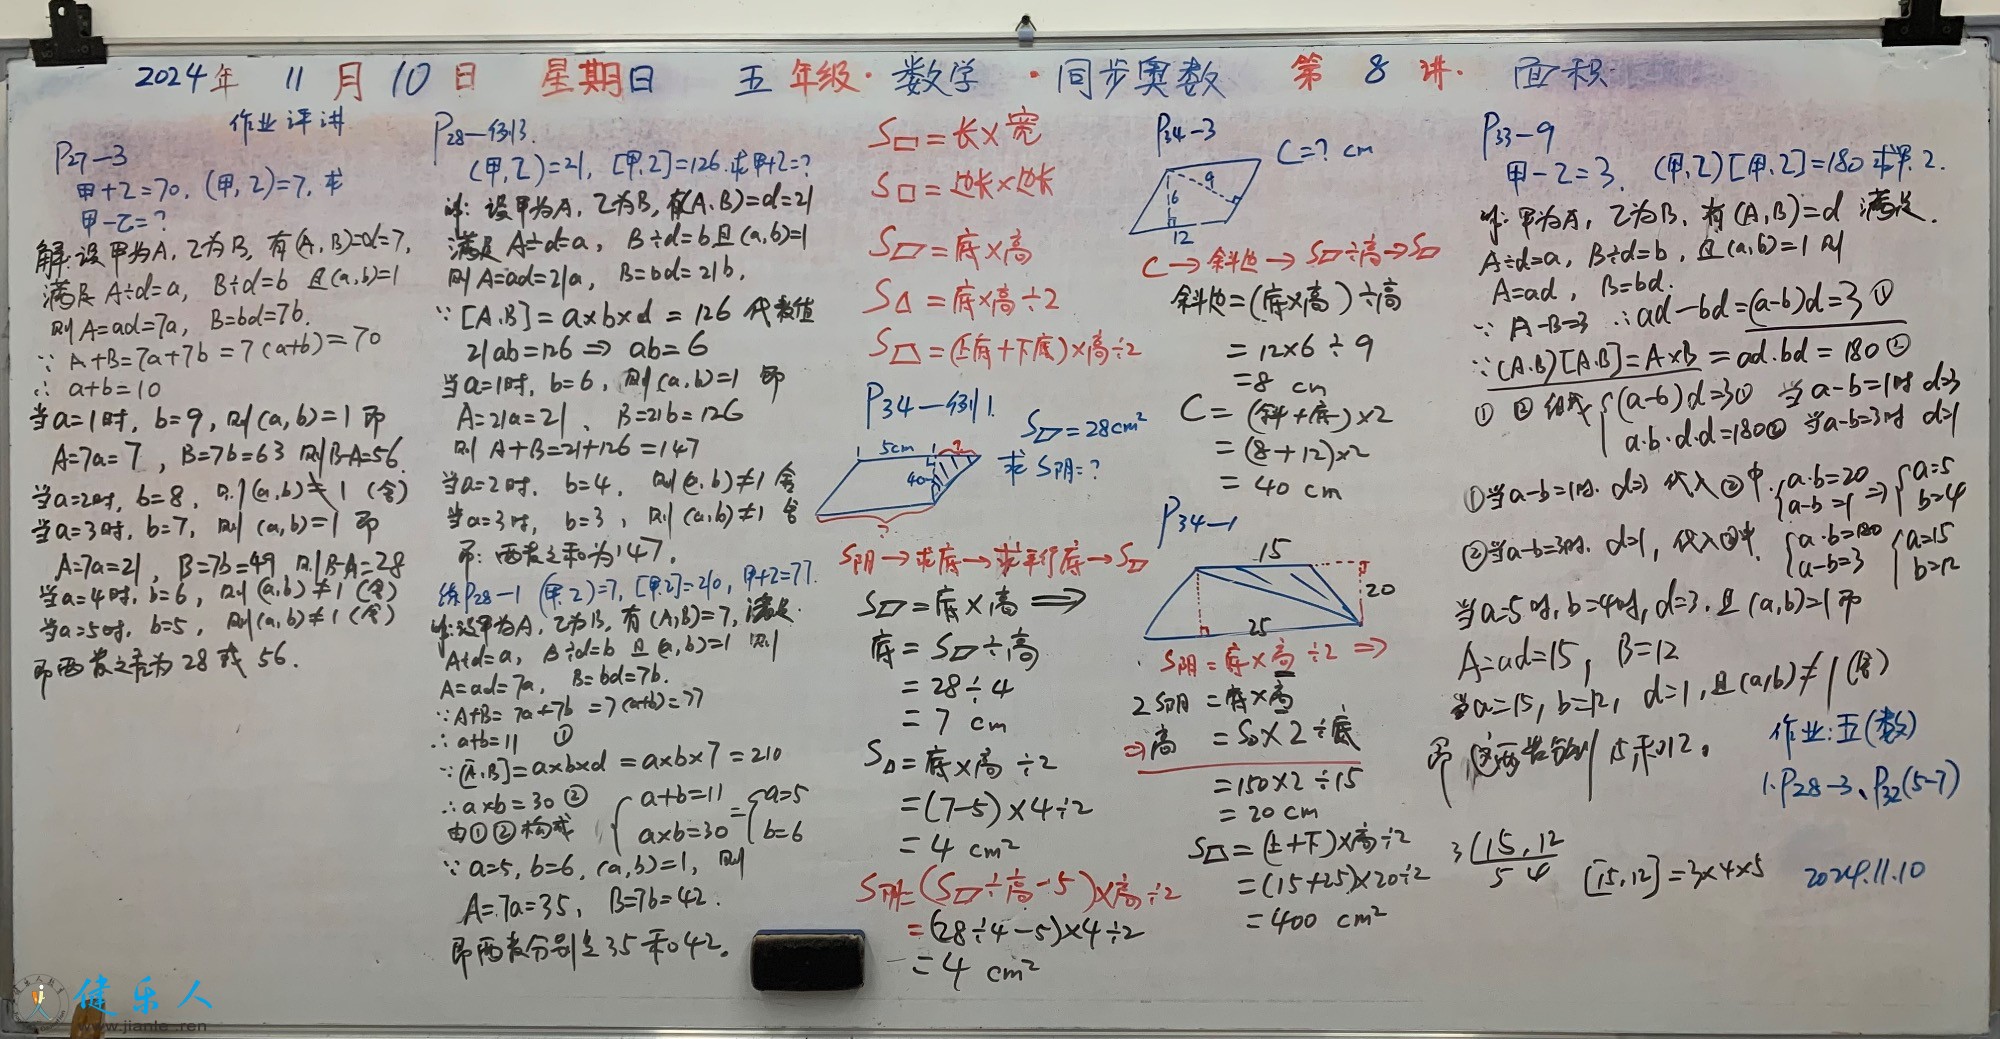 2024年 11月10日 星期日 五年级·数学·同步奥数 第8讲. 面积
作业评讲
P27—3
甲+乙=70, (甲,乙)=7, 求
甲-乙=?
解:设甲为A, 乙为B, 有(A,B)=d=7,
满足 A÷d=a, B÷d=b 且(a,b)=1
则A=ad=7a, B=bd=7b.
∵ A+B=7a+7b=7(a+b)=70
∴ a+b=10
当a=1时, b=9, 则(a,b)=1 即
A=7a=7, B=7b=63 则B-A=56.
当a=2时, b=8, 则(a,b)≠1 (舍)
当a=3时, b=7, 则(a,b)=1 即
A=7a=21, B=7b=49 则B-A=28
当a=4时, b=6, 则(a,b)≠1 (舍)
当a=5时, b=5, 则(a,b)≠1 (舍)
即两数之差为 28 或 56.
P28—例3.
(甲,乙)=21, [甲,乙]=126.求甲+乙=?
解: 设甲为A, 乙为B, 有(A,B)=d=21
满足 A÷d=a, B÷d=b且(a,b)=1
则A=ad=21a, B=bd=21b.
∵ [A,B]=a×b×d=126 代数值
21ab=126 ⇒ ab=6
当a=1时, b=6, 则(a,b)=1 即
A=21a=21, B=21b=126
则 A+B=21+126=147
当a=2时, b=4, 则(a,b)≠1 舍
当a=3时, b=3, 则(a,b)≠1 舍
即: 两数之和为147.
练P28—1 (甲,乙)=7, [甲,乙]=210, 甲+乙=77.
解:设甲为A, 乙为B, 有(A,B)=7, 满足.
A÷d=a, B÷d=b 且(a,b)=1 则
A=ad=7a, B=bd=7b.
∵A+B=7a+7b=7(a+b)=77
∴a+b=11 ①
∵[A,B]=a×b×d=a×b×7=210
∴a×b=30 ②
由①②构成 { a+b=11 a×b=30 = { a=5 b=6
∵ a=5, b=6, (a,b)=1, 则
A=7a=35, B=7b=42.
即两数分别是35和42.
S▭=长×宽
S□=边长×边长
S▱=底×高
S△=底×高÷2
S⏢=(上底+下底)×高÷2
P34—例1.
S▱=28cm²
求 S阴=?
5cm ?
4cm
?
S阴→求底→求平行底→S▱
S▱=底×高 ⇒
底=S▱÷高
=28÷4
=7 cm
S△=底×高÷2
=(7-5)×4÷2
=4 cm²
S阴=(S▱÷高-5)×高÷2
=(28÷4-5)×4÷2
=4 cm²
P34—3
C=? cm
9
6
12
C→斜边→S▱÷高→S▱
斜边=(底×高)÷高
=12×6÷9
=8 cm
C=(斜+底)×2
=(8+12)×2
=40 cm
P34—1
15
20
25
S阴=底×高÷2 ⇒
2S阴=底×高
⇒高=S△×2÷底
=150×2÷15
=20 cm
S⏢=(上+下)×高÷2
=(15+25)×20÷2
=400 cm²
P33—9
甲-乙=3, (甲,乙)[甲,乙]=180 求甲.乙.
解:甲为A, 乙为B, 有(A,B)=d 满足.
A÷d=a, B÷d=b, 且(a,b)=1 则
A=ad, B=bd.
∵ A-B=3 ∴ad-bd=(a-b)d=3 ①
∵(A,B)[A,B]=A×B=ad.bd=180②
①②组成 { (a-b)d=3① a·b·d·d=180② 当a-b=1时 d=3 当a-b=3时 d=1
①当a-b=1时. d=3 代入②中. { a·b=20 a-b=1 ⇒ { a=5 b=4
②当a-b=3时. d=1, 代入②中. { a·b=180 a-b=3 { a=15 b=12
当a=5时, b=4时, d=3, 且(a,b)=1 即
A=ad=15, B=12
当a=15, b=12, d=1, 且(a,b)≠1 (舍)
即这两数分别15和12.
作业:五(数)
1.P28—3、P32(5—7)
3 15, 12
5 4
[15,12]=3×4×5
2024.11.10
健乐人
www.jianle.ren